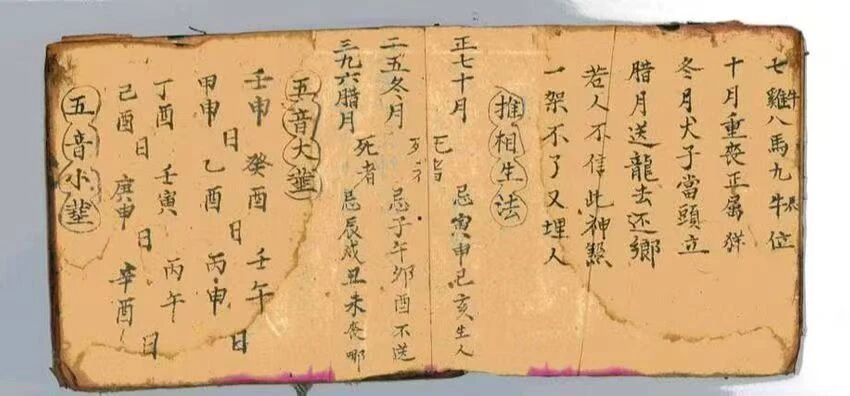 七雞八馬九牛位
十月重喪正屬猪
冬月犬子當頭立
腊月送龍去还鄉
若人不信此神煞
一架不了又埋人
推相生法
正七十月 死者 忌寅申巳亥生人
二五冬月 死者 忌子午卯酉不送
三九六腊月 死者 忌辰戌丑未喪哪
五音大葬
壬申 癸酉 壬午日
甲申日 乙酉日 丙申
丁酉 壬寅 丙午
己酉日 庚申日 辛酉日
五音小葬